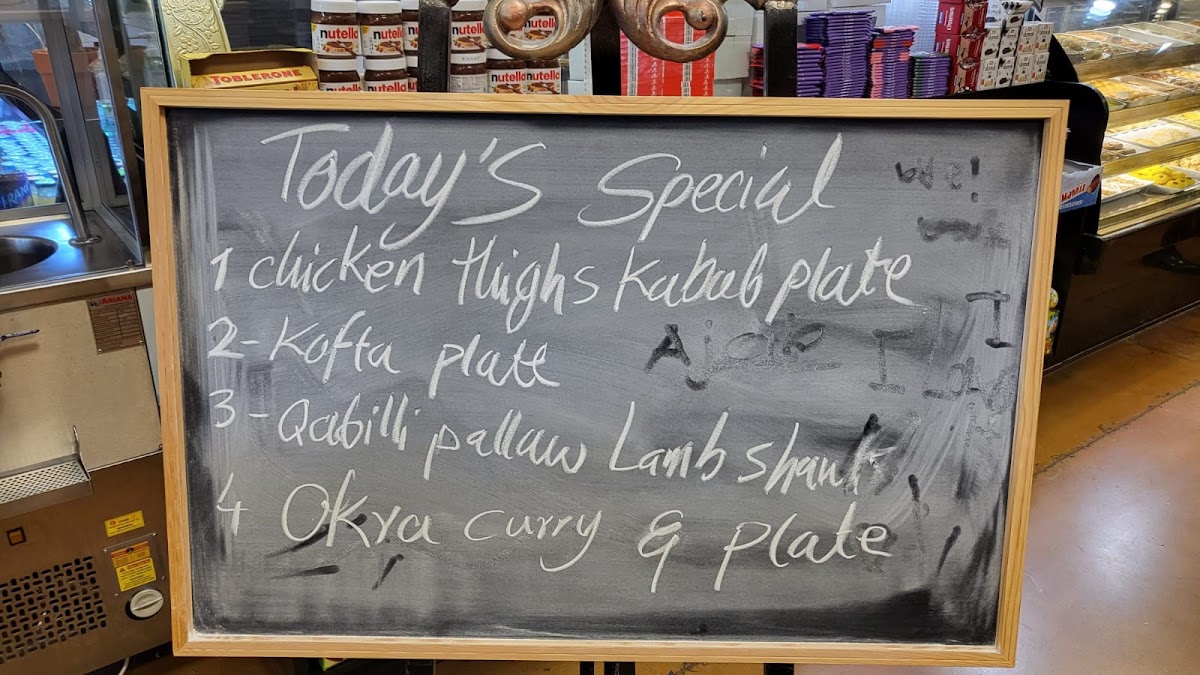 nutella nutella nutella nutella
nutella nutella nutella nutella
TOBLERONE
Today's Special
1 chicken Thighs Kabab plate
2- Kofta plate
3- Qabilli pallaw Lamb shank
4 Okra curry & plate
ARIANA